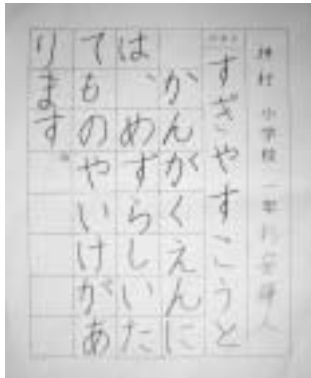 小学校 一年
すぎやすこうと
かんがくえんに
は、めずらしいた
てものやいけがあ
ります。